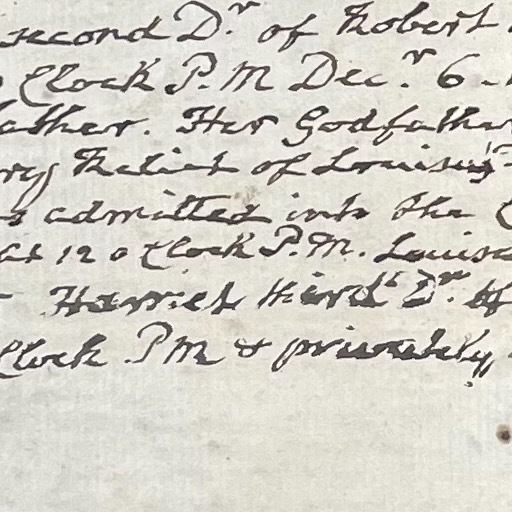 second D.r of Robert
Clock P.M Dec.r 6
father. Her Godfather
Relict of Louisa
admitted into the
at 12 o Clock P.M. Louisa
Harriet third D.r of
Clock P M & privately